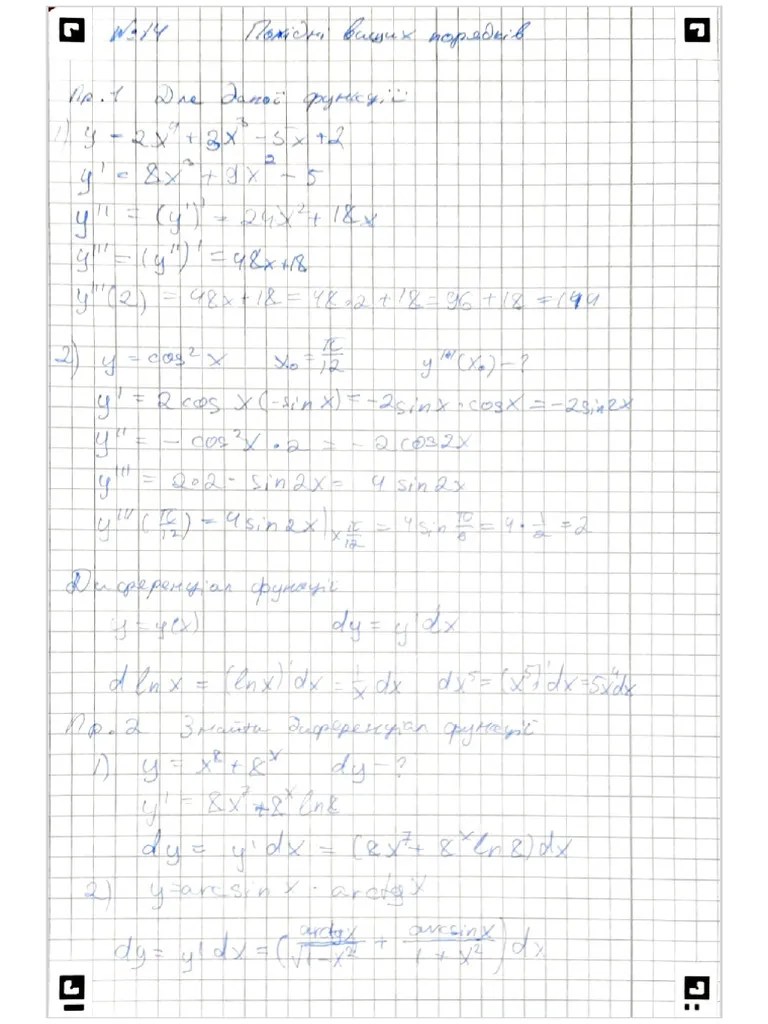 №14 Похідні вищих порядків
Пр.1 Для даної функції
1) y = 2x⁴ + 3x³ - 5x + 2
y' = 8x³ + 9x² - 5
y'' = (y')' = 24x² + 18x
y''' = (y'')' = 48x+18
y'''(2) = 48x+18 = 48·2 + 18 = 96 + 18 = 144
2) y = cos² x x₀ = π/12 y'''(x₀) - ?
y' = 2 cos x (-sin x) = -2sinx·cosx = -2sin2x
y'' = - cos²x · 2 = - 2 cos2x
y''' = 2·2 · sin2x = 4 sin2x
y'''(π/12) = 4 sin 2x |x π/12 = 4 sin π/6 = 4 · 1/2 = 2
Диференціал функції
y = y(x) dy = y'dx
d ln x = (ln x)'dx = 1/x dx dx⁵ = (x⁵)'dx = 5x⁴dx
Пр.2 Знайти диференціал функції
1) y = x⁸ + 8ˣ dy - ?
y' = 8x⁷ + 8ˣ ln8
dy = y'dx = (8x⁷ + 8ˣ ln 8)dx
2) y=arcsin x · arctg x
dy = y'dx = (arctgx/√1-x² + arcsinx/1+x²) dx